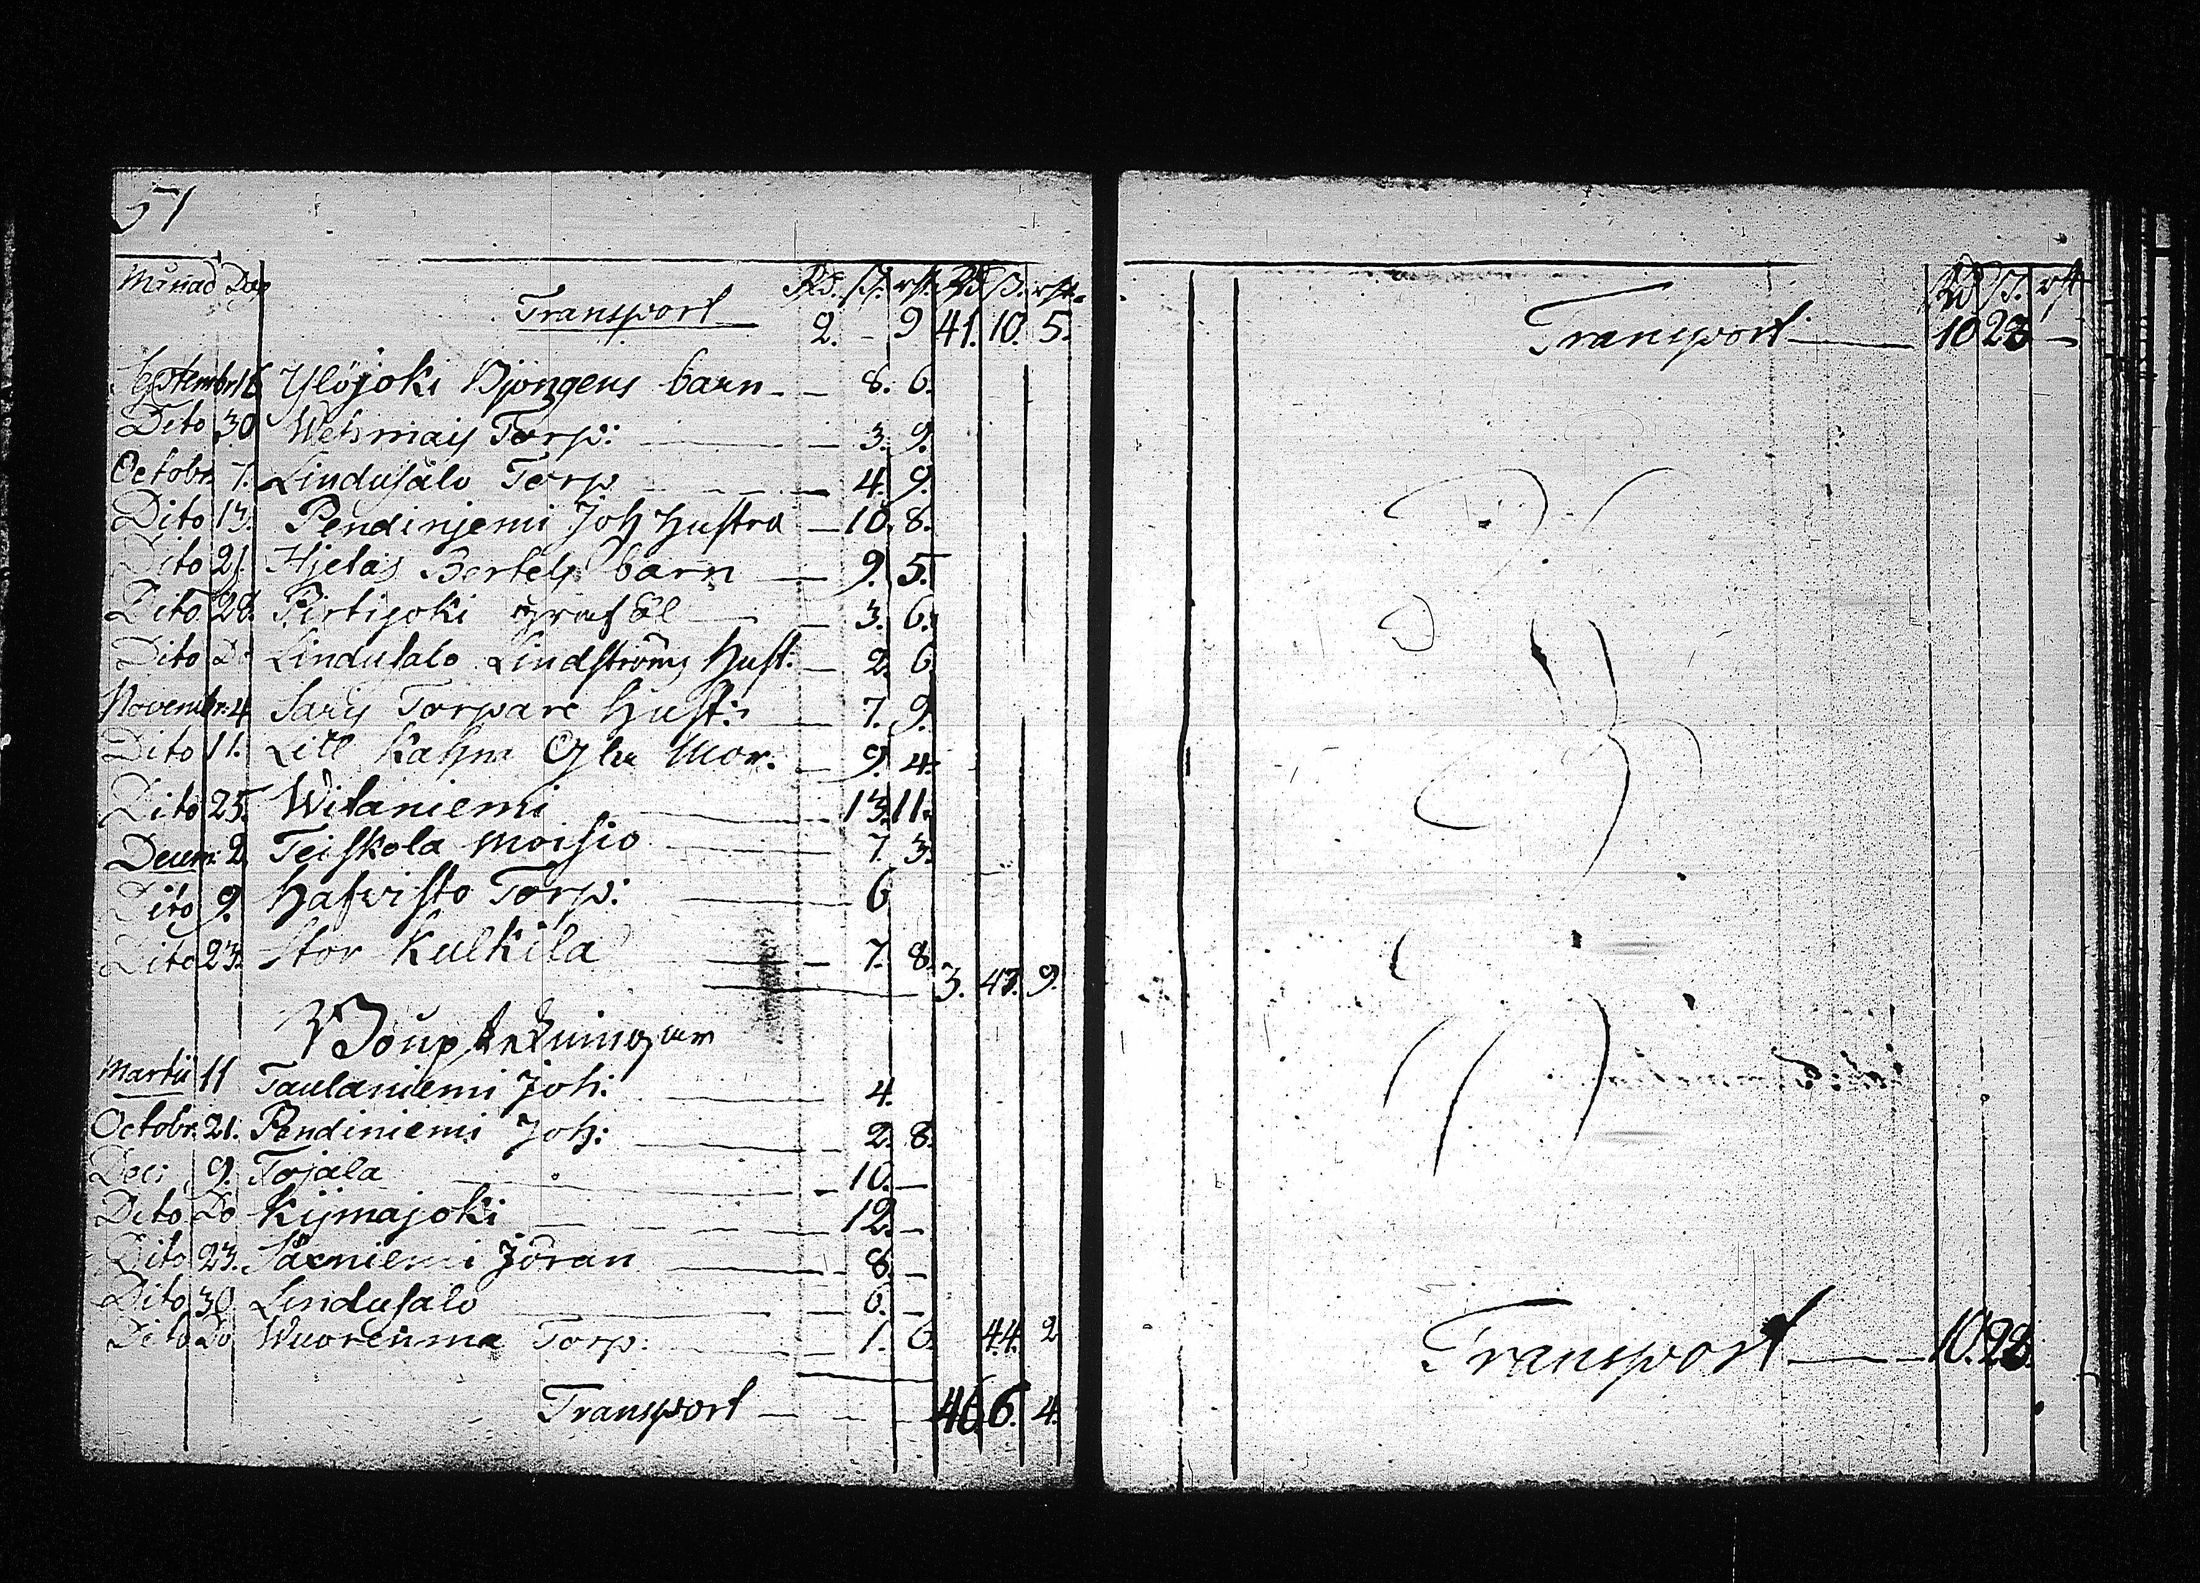 51
Månad Dag Rd. ß. rst. Rd. ß. rst.
Transport 2. - 9 41. 10. 5.
Septembr 16 Ylöjoki Bjöngens barn - - 8. 6.
Dito 30 Wehmais Torp: 3. 9.
Octobr. 7. Lindusalo Torp 4. 9.
Dito 13. Pendinjemi Joh Hustru 10. 8.
Dito 21. Hjetas Bertels barn 9. 5.
Dito 28. Pirtijoki graföl 3. 6.
Dito Do Lindusalo Lindströms Hust: 2. 6.
Novembr. 4 Sarij Torpare Hust: 7. 9.
Dito 11. Lill Kahra Mor. 9. 4.
Dito 25. Witaniemi 13. 11.
Decem: 2. Teiskola Moisio 7. 3.
Dito 9. Hafvisto Torp: 6
Dito 23. Stor Kulkila 7. 8.
3. 47. 9.
Martii 11 Taulaniemi Joh: 4.
Octobr. 21. Pendiniemi Joh: 2. 8.
Dec: 9. Tojala 10. —
Dito Do Kijmajoki 12. —
Dito 23. Säxniemi Jöran 8. —
Dito 30 Lindusalo 6. —
Dito Do Wuorenma Torp. 1. 6. 44. 2
Transport 46. 6. 4.
Rd ß. rst
Transport 10 28 —
Transport 10. 28.